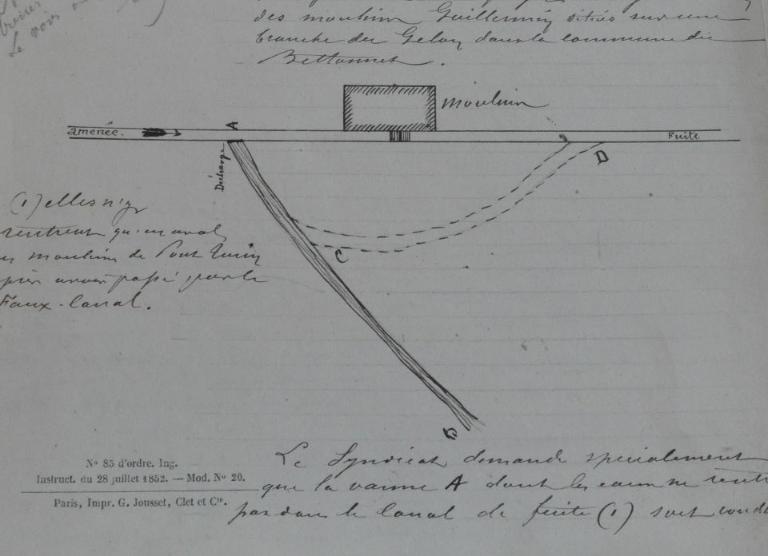 des moulins Guillermin situés sur une
branche du Gelon dans la commune de
Bettonnet.
moulin
amenée.
A
Fuite
Décharge
D
C
B
(1) elles n'y
rentrent qu'en aval
moulins de Pont
après avoir passé par le
Faux-Canal.
Le Syndicat demande spécialement
que la vanne A dont les eaux ne
pas dans le Canal de fuite (1) soit
No 85 d'ordre. Ing.
Instruct. du 28 juillet 1852. — Mod. No 20.
Paris, Impr. G. Jousset, Clet et Cie.